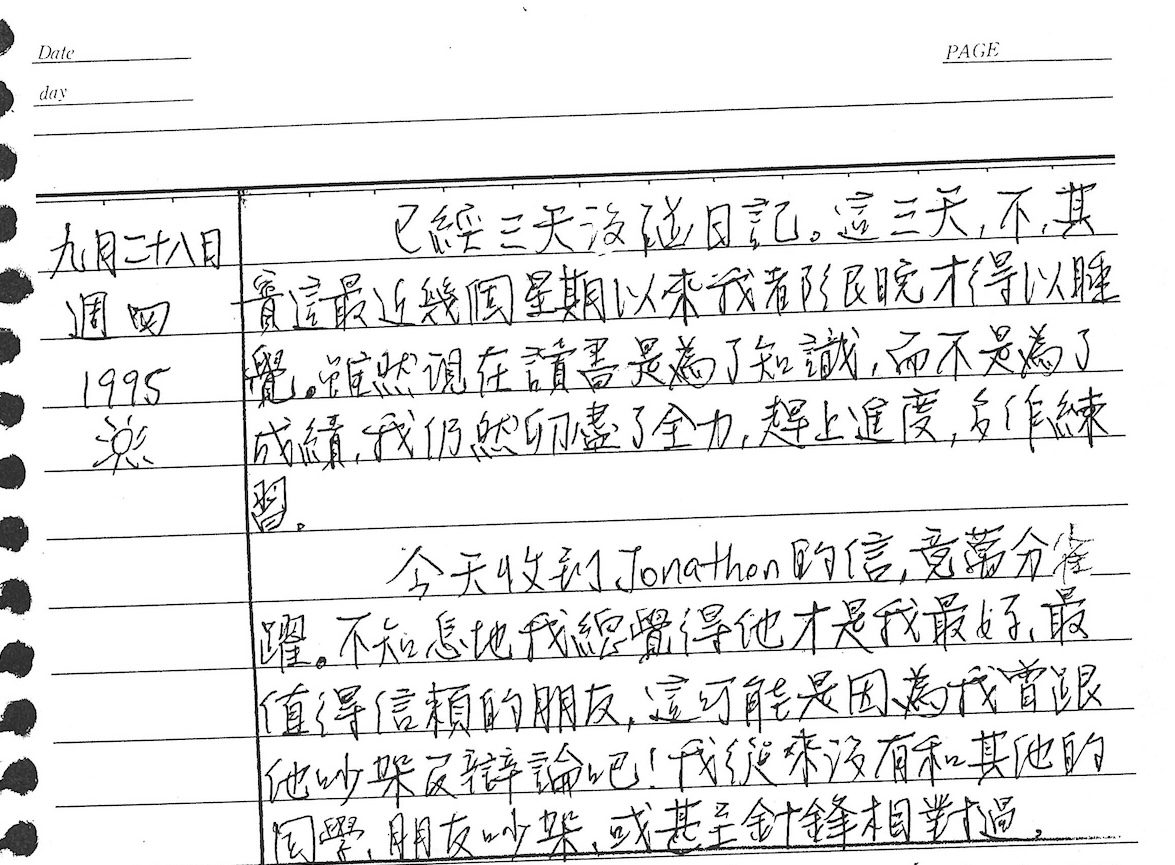 Date
PAGE
day
九月二十八日
週四
1995
已經三天沒碰日記。這三天,不,其
實這最近幾個星期以來我都很晚才得以睡
覺。雖然現在讀書是為了知識,而不是為了
成績,我仍然卯盡了全力,趕上進度,去作練
習。
今天收到Jonathon的信,竟萬分雀
躍。不知怎地我總覺得他才是我最好、最
值得信賴的朋友,這可能是因為我曾跟
他吵架及辯論吧!我從來沒有和其他的
同學、朋友吵架,或甚至針鋒相對過。